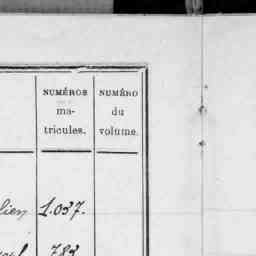 NUMÉROS
ma-
tricules.
NUMÉRO
du
volume.
1.037.
783